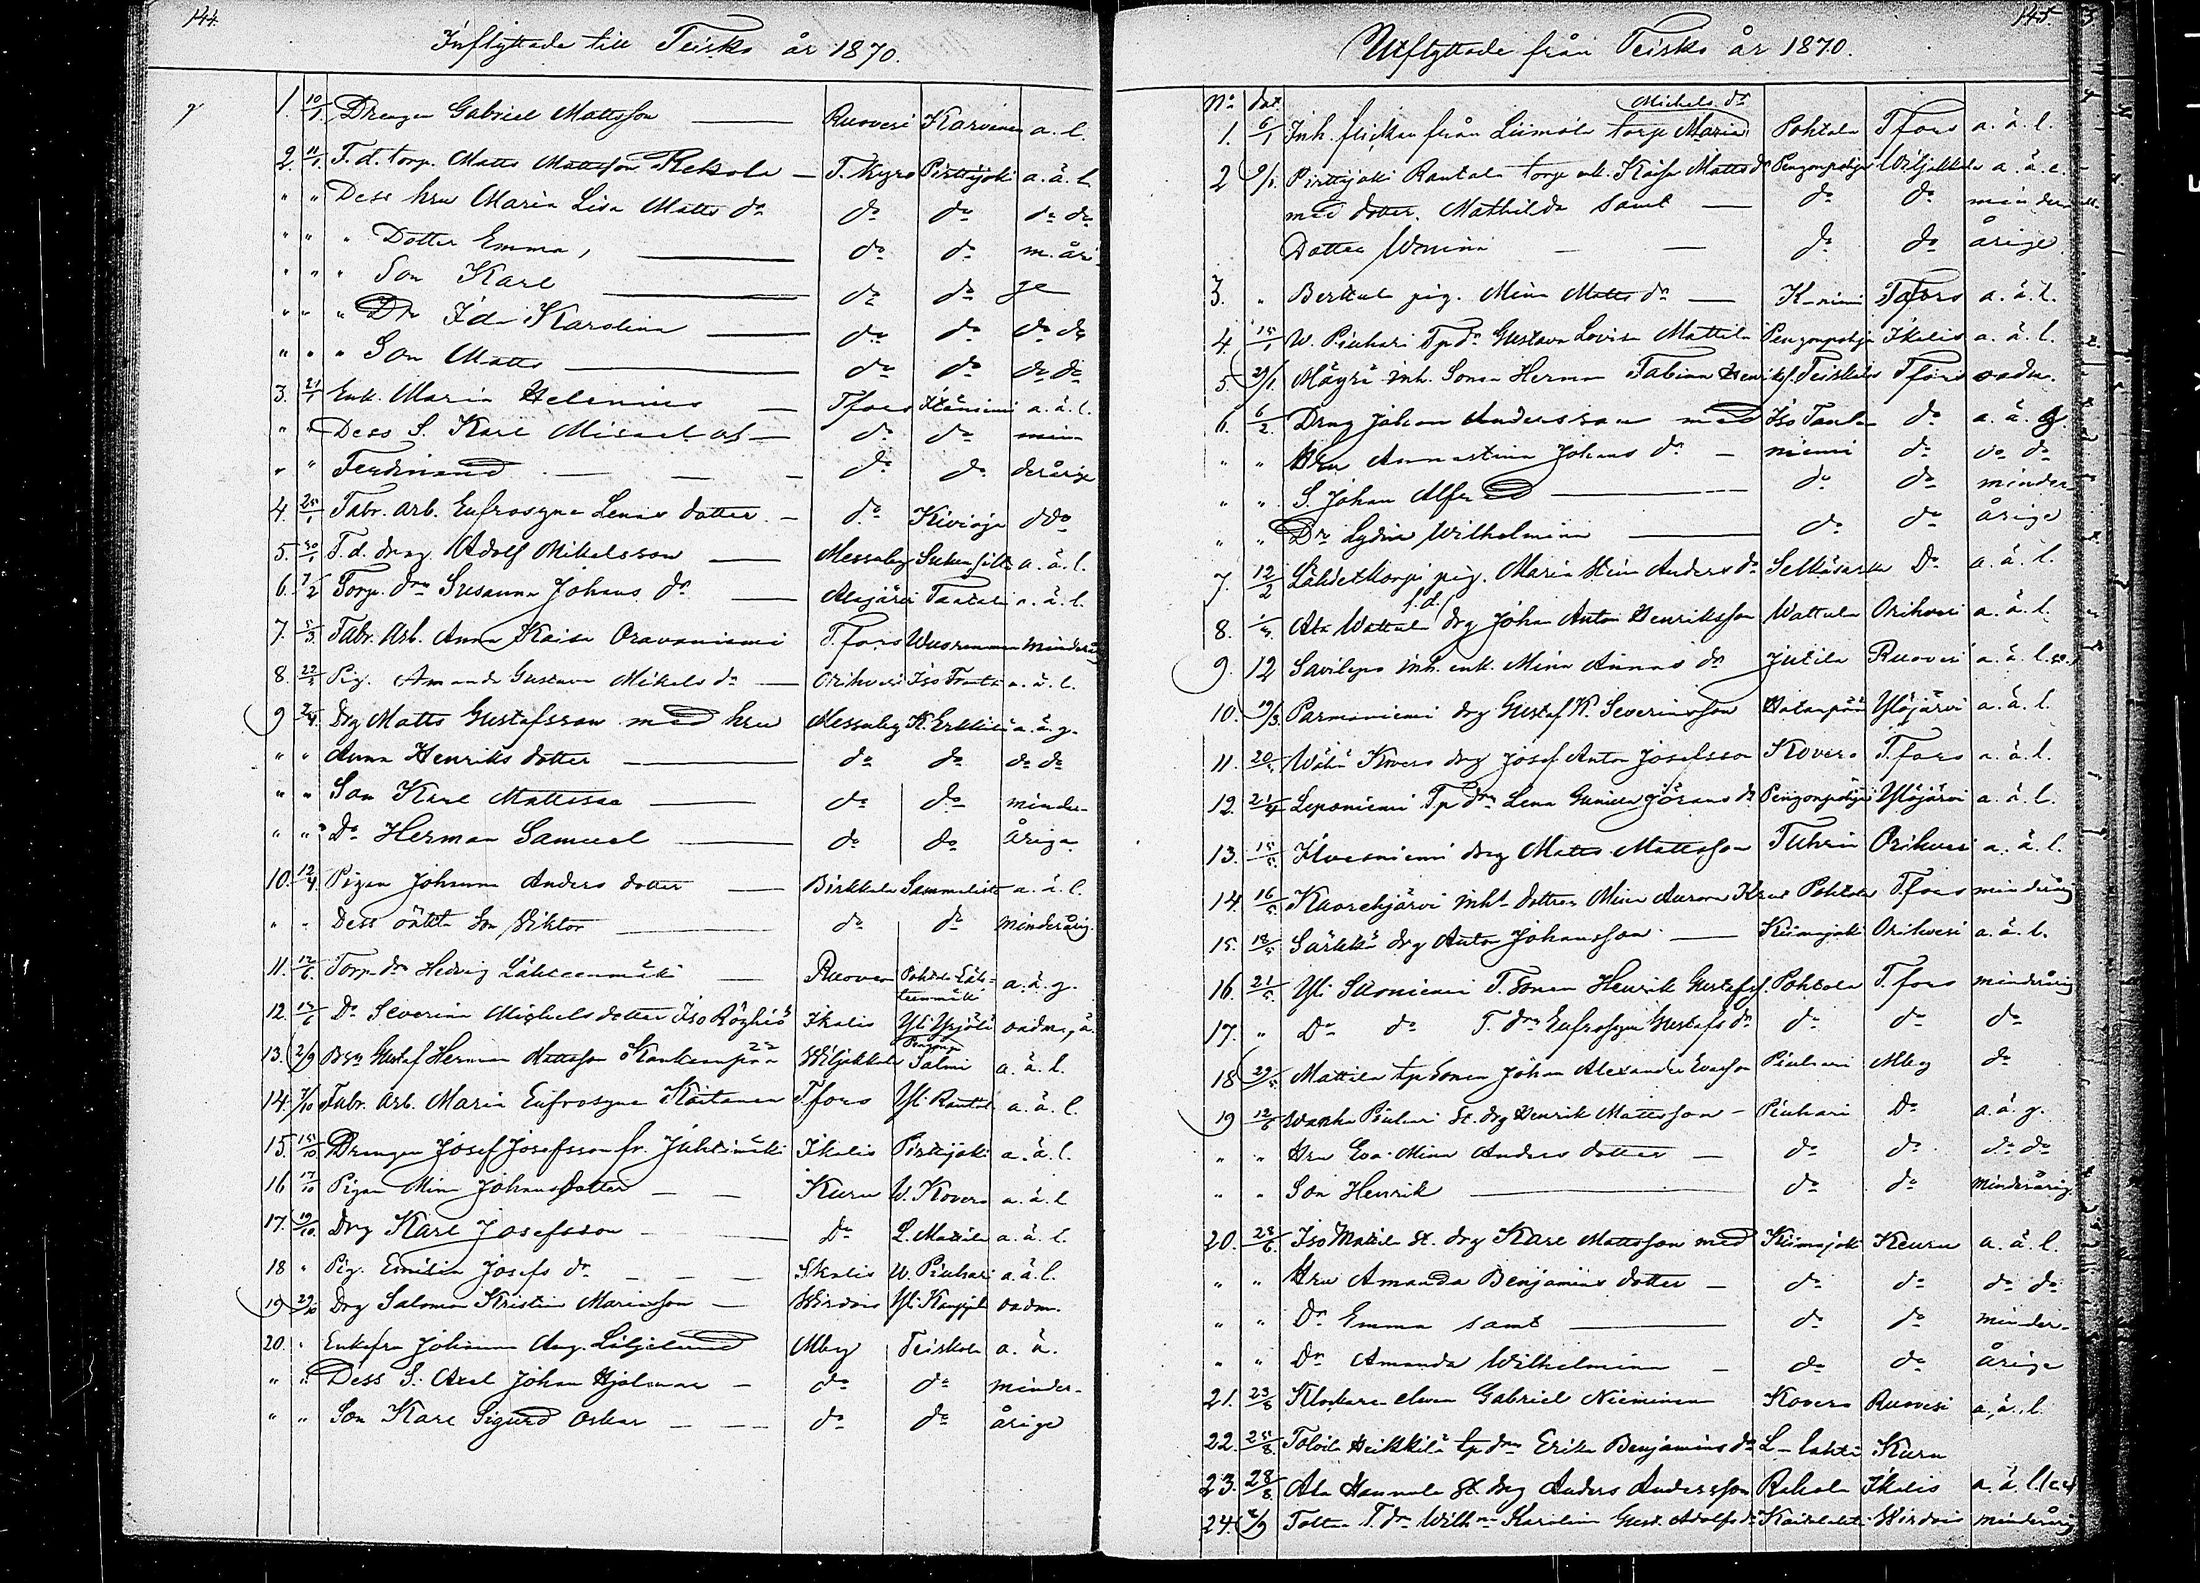 144.
Inflyttade till Teisko år 1870.
1. 10/1 Drengen Gabriel Mattsson Ruovesi Karvinen a. l.
2. 11/1 T. d. torp. Matts Mattsson Rekola T. kyro Pirttijoki a. ä. l.
" " Dess hru Maria Lisa Matts dr do do do do
" " " Dotter Emma, do do m. åri-
" " " Son Karl do do ge
" " " Dr Ida Karolina do do do do
" " " Son Matts do do do do
3. 21/1 Enk. Maria Helenius Tfors a. ä. l.
" " Dess S. Karl Misael och do do min-
" " Ferdinand do do derårige
4. 25/1 Fabr. arb. Eufrosyne Lenas dotter do Kivioja ddo
5. 30/1 T. d. dreng Adolf Mikelsson Messuby a. ä. l.
6. 7/2 Torp. dr Susanna Johans dr Alajärvi Taatala a. ä. l.
7. 5/3 Fabr. Arb. Anna Kaisa Oravaniemi T. fors Minderå
8. 22/3 Pig. Amanda Gustava Mikels dr Orihvesi a. ä. l.
9 2/4 Drg Matts Gustafsson med hru Messuby K. Erkkilä a. ä. g.
" " Anna Henriks dotter do do do do
" " Son Karl Mattsson do do minder-
" " Do Herman Samuel do do årige
10. 12/4 Pigan Johanna Anders dotter Birkkala a. ä. l.
" " Dess oäkta son Viktor do do minderårig.
11. 12/6 Torp. dr Hedvig Lähteenmäki Ruovesi Pohtola Läh-
teenmäki a. ä. g.
12. 13/6 Dr Severina Michels dotter Iso Röyhiö Ikalis Yli oadm.
13. 2/9 Gustaf Herman Mattsson Kankaanpää Wiljakkala Salmi a. ä. l.
14. 7/10 Fabr. Arb. Maria Eufrosyne Koitanen T.fors Yli Rantal a. ä. l.
15. 15/10 Drengen Josef Josefsson fr. Juhtimäki Ikalis Pirttijoki a. ä. l.
16 17/10 Pigan Mina Johansdotter Kuru W. Kovero a. ä. l
17. 19/10 Drg Karl Josefsson do L. Mattila a. ä. l.
18 " Pig. Emilia Josefs dr Ikalis W. Piuhari a. ä. l.
19 29/10 Drg Salomon Kristian Mariasson Wirdois oadm.
20. " Enkefru Johanna Aug. Liljelund Mby Teiskola a. ä.
" " Dess S. Axel Johan Hjalmar do do minder-
" " Son Karl Sigurd Oskar do do årige
145.
Utflyttade från Teisko år 1870.
No dat.
Michels dr
1. 6/1 Inh. flickan från Liimola torp Maria Pohtola T fors a. ä. l.
2 9/1. Pirttijoki Rantala torp enk. Kaisa Matts dr Pengonpohja Wiljakkala a. ä. l.
med dotter. Mathilda samt do do minder-
Dotter Wonina do do årige
3. " Berttula pig. Mina Matts dr K-niemi Tafors a. ä. l.
4. 15/1 W. Piuhari Tp dr Gustava Lovisa Mattila Pengonpohja Ikalis a. ä. l.
5. 29/1 Mäyrä inh. Sonen Herman Fabian Henriks. Teiskola T fors oadm.
6. 6/2. Dreng Johan Andersson med Iso Taula- do a. ä. g
" " Hru Annastina Johans dr niemi do do do
" " S. Johan Alfred do do minder-
" " Dr Lydia Wilhelmina do do årige
7. 12/2 Lähdekorpi pig. Maria Stina Anders dr Selkäsaari Do a. ä. l.
8. Ala Wattula f.d. drg Johan Anton Henriksson Wattula Orihvesi a. ä. l.
9. 12 Savilepo inh. enk. Mina Annas dr Jutila Ruovesi a. ä. l.
10. 19/3. Parmaniemi drg Gustaf K. Severinsson Hatanpää Ylöjärvi a. ä. l.
11. Wähä Kovero drg Josef Anton Josefsson Kovero T. fors a. ä. l.
12. 21/4 Leponiemi Tp dr Lena Gunilla Jörans dr Pengonpohja Ylöjärvi a. ä. l.
13. 15/5. Ilvesniemi drg Matts Mattsson Tuhria Orihvesi a. ä. l.
14. 16/5 Kaarehjärvi inh. dottren Mina Aurora Pohtola T.fors minderårig
15. 18/5 Särkkä drg Anton Johansson Kiimajoki Orihvesi a. ä. l.
16. 21/5. Yli Suoniemi T. Sonen Henrik Gustafs. Pohtola T. fors minderårig
17. " Do do T. dr Eufrosyne Gustafs dr do do do
18 29/5 Mattila tp sonen Johan Alexander Evasson Piuhari Mby do
19 12/6 Wanha Piuhari St. drg Henrik Mattsson Piuhari Do a. ä. g.
" " Hru Eva-Mina Anders dotter do do do do
" " Son Henrik do do Minderårig.
20. 28/6. Iso Mattila st. drg Karl Mattsson med Kiimajoki Keuru a. ä. l.
" " Hru Amanda Benjamins dotter do do do do
" " Dr Emma samt do do minder-
" " Dr Amanda Wilhelmina do do årige
21. 23/8 Klockare eleven Gabriel Nieminen Kovero Ruovesi a. ä. l.
22. 25/8. Tolvila Heikkilä tp dr Erika Benjamins dr L-lahti Kuru
23. 28/8. Ala Hannula St drg Anders Andersson Rahola Ikalis a. ä. l.
24. 4/9 T. dr Wilhna Karolina Gust. Adolfs dr Wirdois minderårig